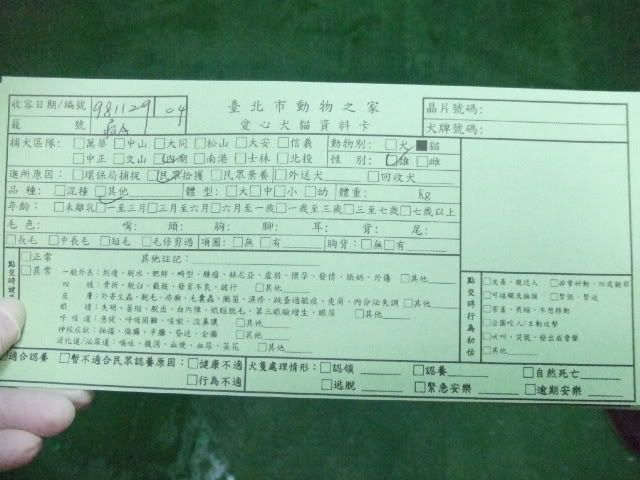 收容日期/編號 981129 04 臺北市動物之家 晶片號碼:
籠號 愛心犬貓資料卡 犬牌號碼:
捕犬區隊: □萬華 □中山 □大同 □松山 □大安 □信義 動物別: □犬 ■貓
□中正 □文山 □內湖 □南港 □士林 □北投 性別: □雄 □雌
進所原因: □環保局捕捉 □民眾拾獲 □民眾棄養 □外送犬 □回收犬
品種: □混種 □其他 體型: □大 □中 □小 □幼 體重: Kg
年齡: □未離乳 □一至三月 □三月至六月 □六月至一歲 □一歲至三歲 □三至七歲 □七歲以上
毛色: 嘴: 頭: 胸: 腳: 耳: 背: 尾:
□長毛 □中長毛 □短毛 □毛修剪過 項圈: □無 □有 胸背: □無 □有
點交時健
□正常 其他註記:
□異常 一般外表: 削瘦、脫水、肥胖、畸型、腫瘤、赫尼亞、虛弱、懷孕、發情、脹奶、外傷 □其他
四肢: 骨折、脫臼、截肢、發育不良、跛行 □其他
皮膚: 外寄生蟲、脫毛、疥癬、毛囊蟲、黴菌、濕疹、跳蚤過敏症、皮屑、內分泌失調 □其他
眼睛: 失明、萎縮、脫出、白內障、眼瞼脫毛、第三眼瞼增生、眼屎 □其他
呼吸道: 急促、呼吸困難、咳嗽、流鼻膿 □其他
神經症狀: 抽搐、癱瘓、半癱、昏迷、全癱 □其他
消化道/泌尿道: 嘔吐、腹瀉、血便、血尿、菜花 □其他
點交時行為初估
□友善、親近人 □非常好動、四處觀察
□可碰觸及撫摸 □緊張、緊迫
□害羞、畏縮、不想移動
□會團咬人/主動攻擊
□吠叫、哭號、發出威脅聲
□其他
□適合認養 □暫不適合民眾認養原因: □健康不適 犬隻處理情形: □認領 □認養 □自然死亡
□行為不適 □逃脫 □緊急安樂 □逾期安樂